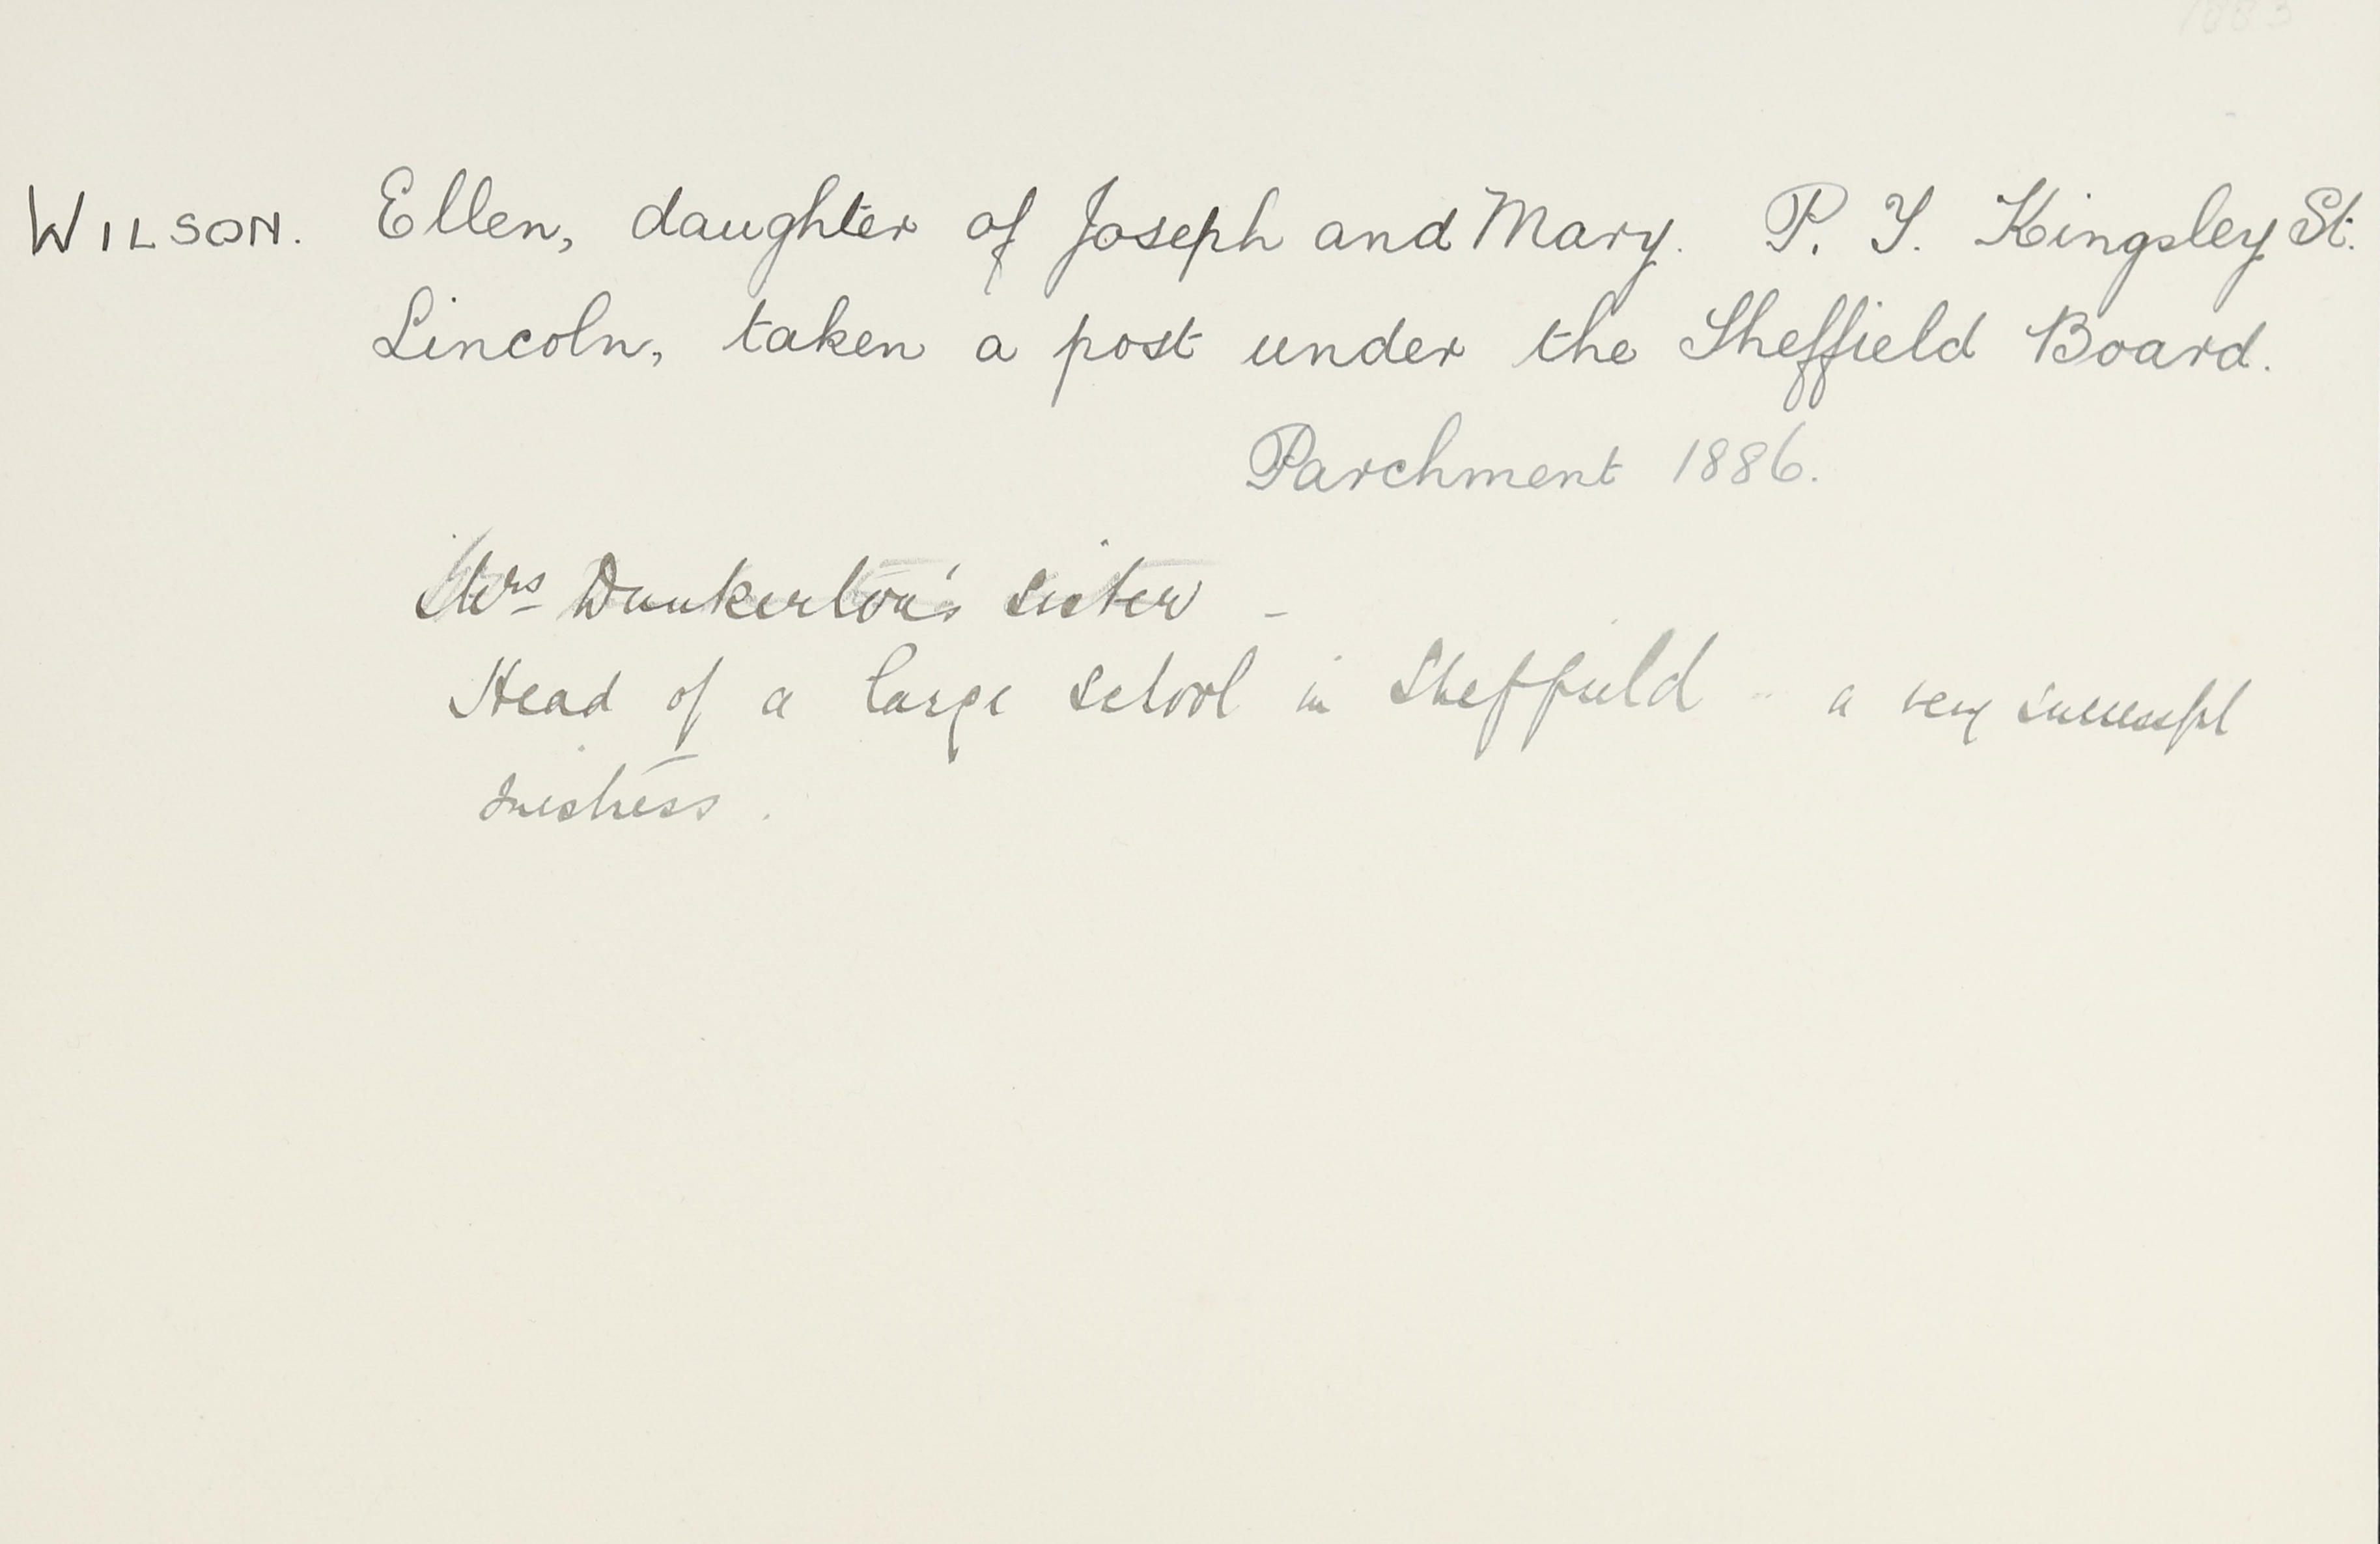 1883
WILSON. Ellen, daughter of Joseph and Mary. P. T. Kingsley St.
Lincoln, taken a post under the Sheffield Board.
Parchment 1886.
Mrs Dunkerton's sister -
Head of a large school in Sheffield - a very successful
mistress.